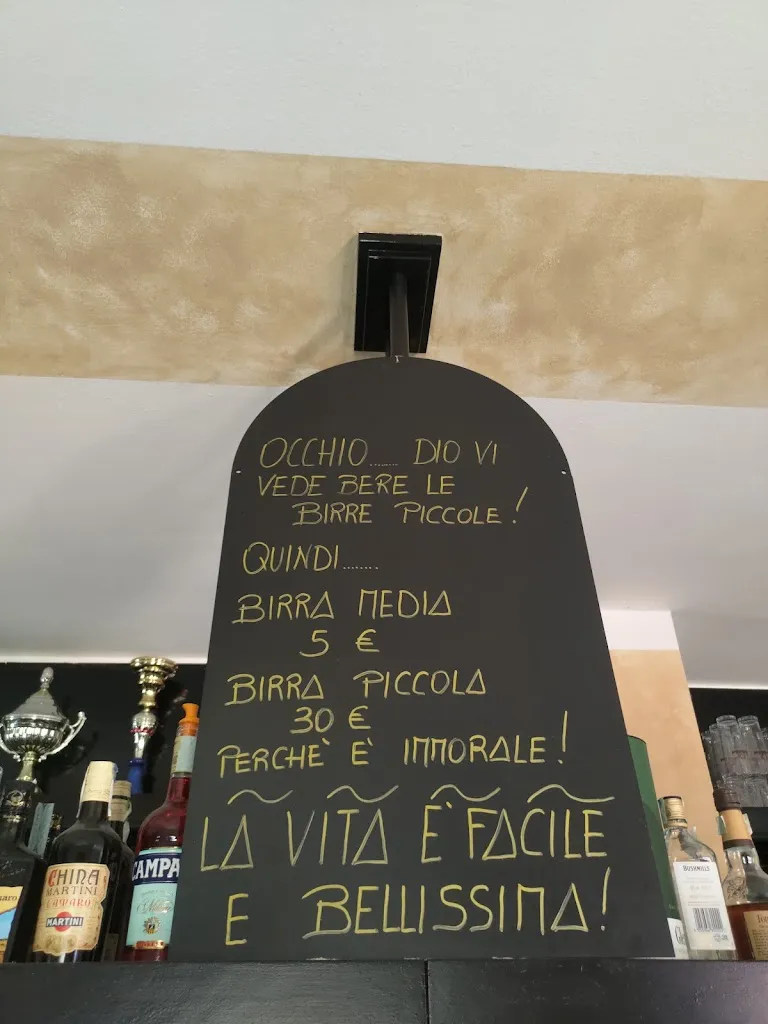 OCCHIO....... DIO VI
VEDE BERE LE
BIRRE PICCOLE!
QUINDI........
BIRRA MEDIA
5 €
BIRRA PICCOLA
30 €
PERCHÈ È IMMORALE!
LA VITA È FACILE
E BELLISSIMA!
CHINA
MARTINI
MARTINI
CAMPA
BUSHMILLS